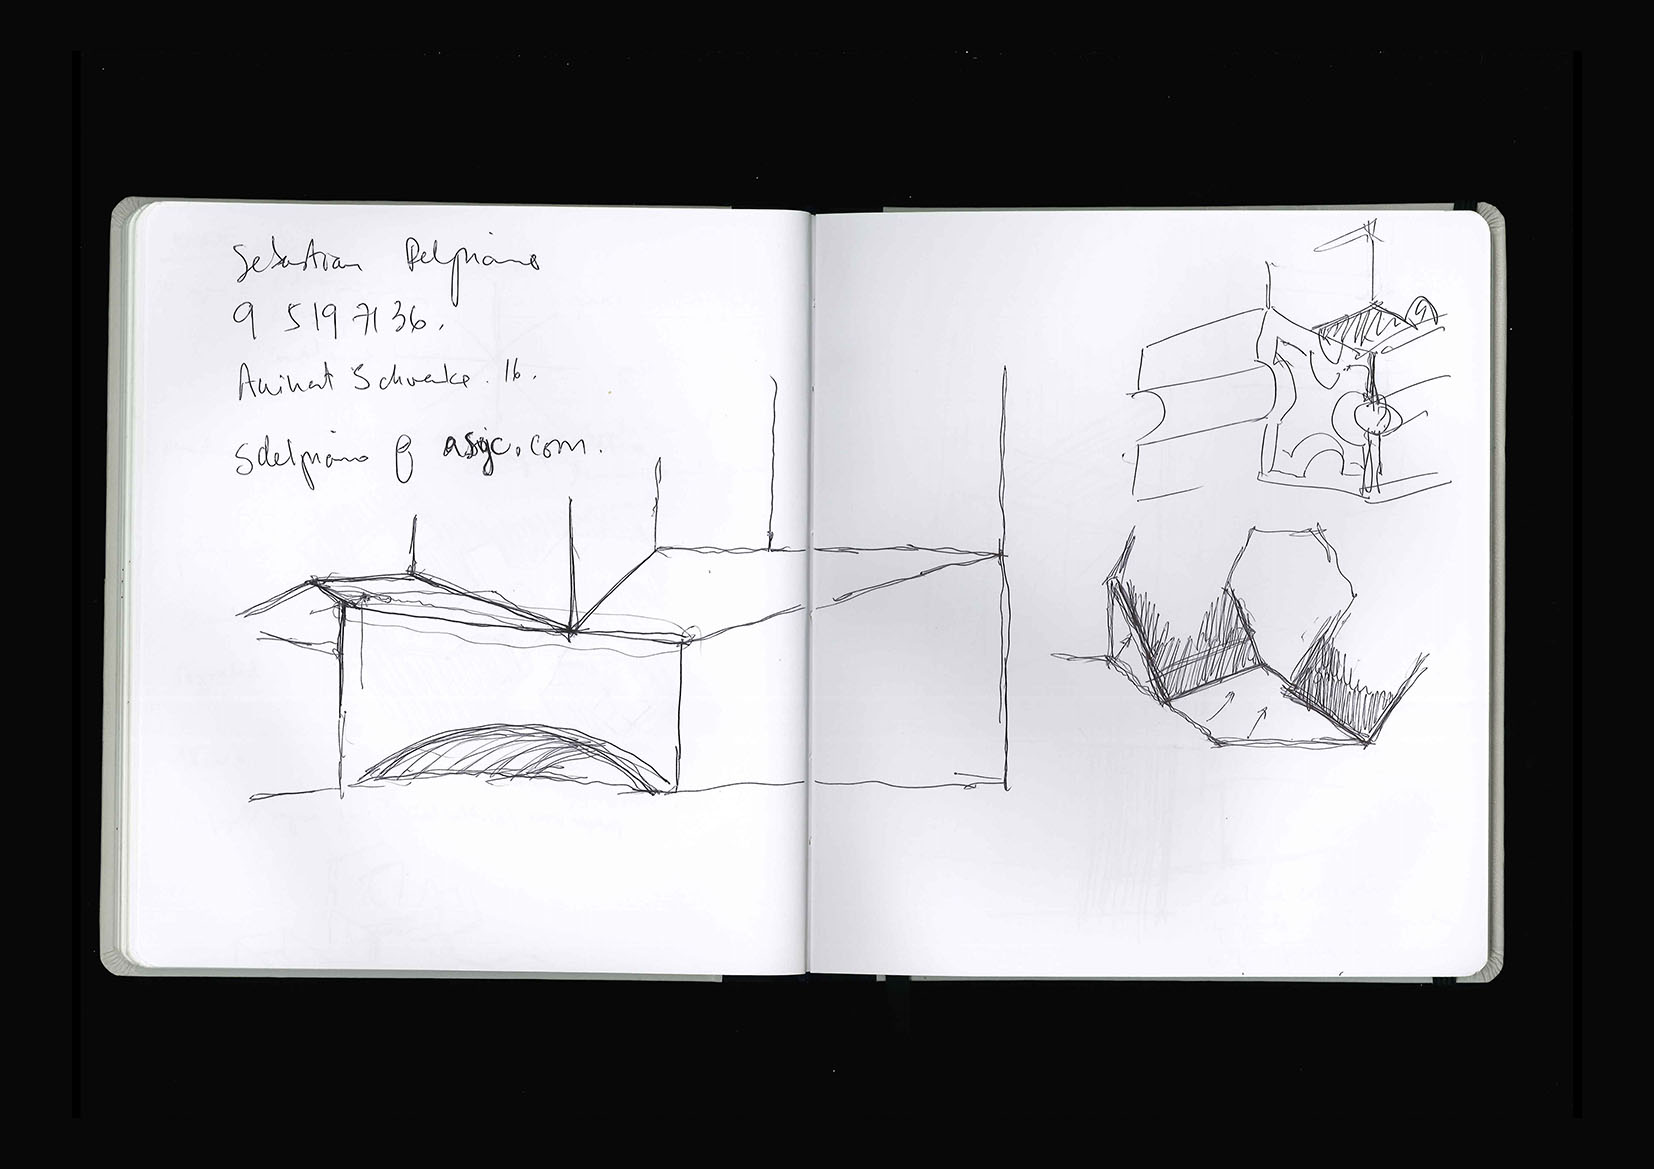 Sebastian Delpiano
9 519 71 36.
Aninat Schwenke. 16.
Sdelpiano @ asyc.com.